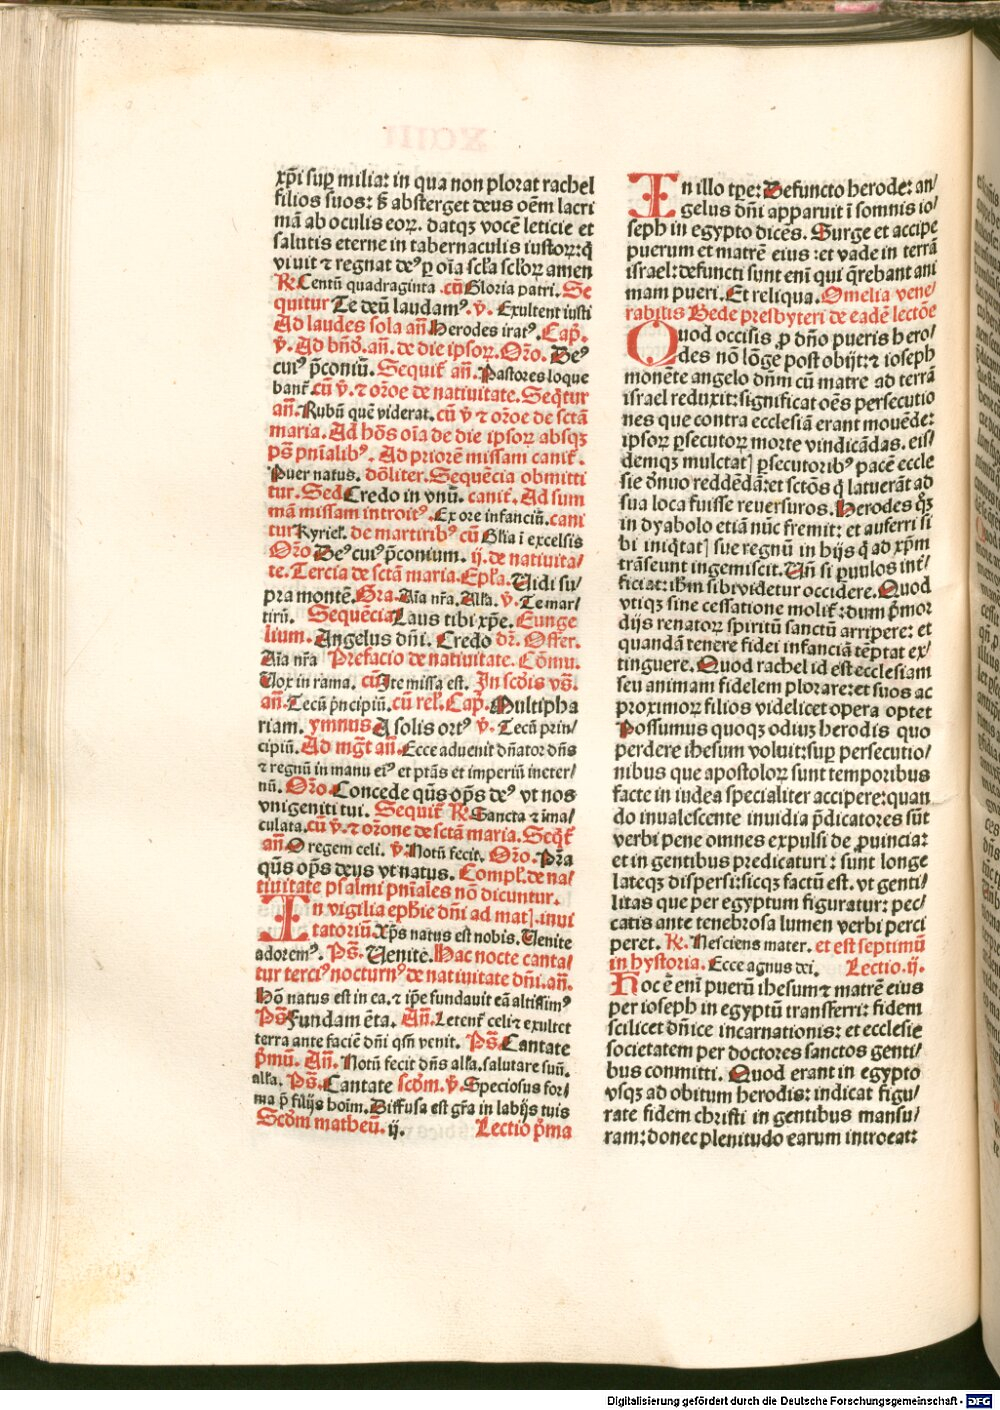 xp̄i suꝑ milia: in qua non plorat rachel
filios suos: s̄ absterget deus oēm lacri
mā ab oculis eoꝝ. datqꝫ vocē leticie et
salutis eterne in tabernaculis iustoꝝ: q̄
viuit ⁊ regnat deꝰ ꝑ oīa scl̄a scl̄oꝝ amen
℟. Centū quadraginta. cū Gloria patri. Se
quitur Te deū laudamꝰ. ꝟ. Exultent iusti
Ad laudes sola añ. Herodes iratꝰ. Cap̄.
ꝟ. Ad bn̄ð. añ. de die ipsoꝝ. Oro̅. Deꝰ
cuiꝰ p̄coniū. Sequit̄ añ. Pastores loque
bant̄. cū ꝟ. ⁊ orōe de natiuitate. Seq̄tur
añ. Rubū quē viderat. cū ꝟ ⁊ orōe de sctā
maria. Ad hōs oīa de die ipsoꝝ absqꝫ
ps̄ pn̄ialibꝰ. Ad priorē missam canit̄.
Puer natus. dōliter. Sequēcia obmitti
tur. Sed Credo in vnū. canit̄. Ad sum
mā missam introitꝰ. Ex ore infanciū. cani
tur Kyriel̄. de martiribꝰ cū Gl̄ia ī excelsis
Oro̅ Deꝰ cuiꝰ p̄conium. ij. de natiuita/
te. Tercia de sctā maria. Epl̄a. Uidi su/
pra montē. Gra. Aīa nr̄a. All̄a. ꝟ. Te mar/
tirū. Sequēcia Laus tibi xp̄e. Eunge
lium. Angelus dn̄i. Credo dr̄. Offer.
Aīa nr̄a Prefacio de natiuitate. Cōmu.
Uox in rama. cū Ite missa est. In scd̄is vs̄.
añ. Tecū p̄ncipiū. cū rel̄. Cap̄. Multipha
riam. ymnus A solis ortꝰ ꝟ. Tecū prin/
cipiū. Ad mg̅t añ. Ecce aduenit dn̄ator dn̄s
⁊ regnū in manu eiꝰ et ptās et imperiū in eter/
nū. Oro̅. Concede qūs op̄s deꝰ vt nos
vnigeniti tui. Sequit̄ ℟. Sancta ⁊ īma/
culata. cū ꝟ. ⁊ orōne de sctā maria. Seq̄t̄
añ. O regem celi. ꝟ. Notū fecit. Oro̅. Pr̄a
qūs op̄s deus vt natus. Compl̄. de na/
tiuitate psalmi pn̄iales nō dicuntur.
In vigilia eph̄ie dn̄i ad mat̄. inui
tatoriū Xp̄s natus est nobis. Uenite
adoremꝰ. Ps̄. Uenite. Hac nocte canta/
tur terciꝰ nocturnꝰ de natiuitate dn̄i. añ.
Hō natus est in ea. ⁊ ip̄e fundauit eā altissimꝰ
Ps̄ Fundam ēta. Añ. Letent̄ celi ⁊ exultet
terra ante faciē dn̄i qm̄ venit. Ps̄. Cantate
p̄mū. Añ. Notū fecit dn̄s all̄a. salutare suū.
all̄a. Ps̄. Cantate scd̄m. ꝟ. Speciosus for/
ma p̄ filijs hoīm. Diffusa est gr̄a in labijs tuis
Scd̄m matheū. ij. Lectio p̄ma
In illo tp̄e: Defuncto herode: an/
gelus dn̄i apparuit ī somnis io/
seph in egypto dicēs. Surge et accipe
puerum et matrē eius: et vade in terrā
israel: defuncti sunt enī qui q̄rebant ani
mam pueri. Et reliqua. Omelia vene/
rabilis Bede presbyteri de eadē lectōe
Quod occisis ꝓ dn̄o pueris hero/
des nō lōge post obijt: ⁊ ioseph
monēte angelo dn̄m cū matre ad terrā
israel reduxit: significat oēs persecutio
nes que contra ecclesiā erant mouēde:
ipsoꝝ ꝑsecutoꝝ morte vindicādas. eis/
demqꝫ mulctat̄ ꝑsecutoribꝰ pacē eccle
sie dn̄uo reddēdā: et sctōs q̄ latuerāt ad
sua loca fuisse reuersuros. Herodes q̄ꝫ
in dyabolo etiā nūc fremit: et auferri si
bi iniq̄tat̄ sue regnū in hijs q̄ ad xp̄m
trāseunt ingemiscit. Un̄ si ꝑuulos int̄/
ficiat: ih̄m sibi videtur occidere. Quod
vtiqꝫ sine cessatione molit̄: dum p̄mor
dijs renatoꝝ spiritū sanctū arripere: et
quandā tenere fidei infanciā tēptat ex/
tinguere. Quod rachel id est ecclesiam
seu animam fidelem plorare: et suos ac
proximoꝝ filios videlicet opera optet
Possumus quoqꝫ odiuꝫ herodis quo
perdere ihesum voluit: suꝑ persecutio/
nibus que apostoloꝝ sunt temporibus
facte in iudea specialiter accipere: quan
do inualescente inuidia p̄dicatores sūt
verbi pene omnes expulsi de ꝓuincia:
et in gentibus predicaturi: sunt longe
lateqꝫ dispersi: sicqꝫ factū est. vt genti/
litas que per egyptum figuratur: pec/
catis ante tenebrosa lumen verbi perci
peret. ℟. Nesciens mater. et est septimū
in hystoria. Ecce agnus dei. Lectio. ij.
Hoc ē enī puerū ihesum ⁊ matrē eius
per ioseph in egyptū transferri: fidem
scilicet dn̄ice incarnationis: et ecclesie
societatem per doctores sanctos genti/
bus conmitti. Quod erant in egypto
vsqꝫ ad obitum herodis: indicat figu/
rate fidem christi in gentibus mansu/
ram: donec plenitudo earum introeat:
Digitalisierung gefördert durch die Deutsche Forschungsgemeinschaft - DFG